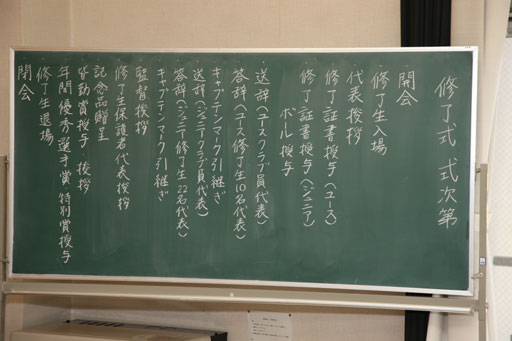 修了式 式次第
開会
修了生入場
代表挨拶
修了証書授与(ユース)
修了証書授与(ジュニア)
ボール授与
送辞(ユースクラブ員代表)
答辞(ユース修了生10名代表)
キャプテンマーク引継ぎ
送辞(ジュニアクラブ員代表)
答辞(ジュニア修了生22名代表)
キャプテンマーク引継ぎ
監督挨拶
修了生保護者代表挨拶
記念品贈呈
皆勤賞授与 挨拶
年間優秀選手賞 特別賞授与
修了生退場
閉会